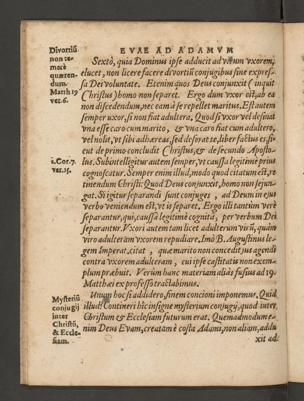 EVAE AD ADAMVM
Divortiũ
non te-
merè
quæren-
dum.
Matth 19
ver. 6.
Sextò, quia Dominus ipse adducit ad virum vxorem,
elucet, non licere facere divortiũ conjugibus sine expres-
sa Dei voluntate. Etenim quos Deus conjunxit (inquit
Christus) homo non separet. Ergo dum vxor eſt, ab ea
non discedendum, nec eam à se repellet maritus. Est autem
semper vxor, si non fiat adultera. Quod si vxor vel desierit
vna esse caro cum marito, & vna caro fiat cum adultero,
vel nolit, vt sibi adhæreas, sed deserat te, liber factus es, si-
cut de primo docuit Christus, & de secundo Aposto-
1. Cor. 7.
ver. 15.
lus. Subintelligitur autem semper, vt caussa legitimè prius
cognoscatur. Semper enim illud, modo quod citatum est, re-
tinendum Christi: Quod Deus conjunxit, homo non sejun-
gat. Si igitur separandi sunt conjuges, ad Deum in ejus
verbo veniendum est, vt is separet. Ergo illi tantùm verè
separantur, qui, caussâ legitimè cognitâ, per verbum Dei
separantur. Vxori autem tam licet adulterum virũ, quàm
viro adulteram vxorem repudiare. Imò B. Augustinus le-
gem Imperat. citat, quæ marito non concedit jus agendi
contra vxorem adulteram, cui ipse castitatis non exem-
plum præbuit. Verùm hanc materiam aliàs fusius ad 19.
Matthæi ex professo tractabimus.
Mysteriũ
conjugij
inter
Christũ,
& Eccle-
siam.
Vnum hoc si addidero, finem concioni imponemus. Quid
illud? Contineri hîc insigne mysterium conjugij, quod inter
Christum & Ecclesiam futurum erat. Quemadmodum e-
nim Deus Evam, creatam è costa Adami, non aliam, addu
xit ad